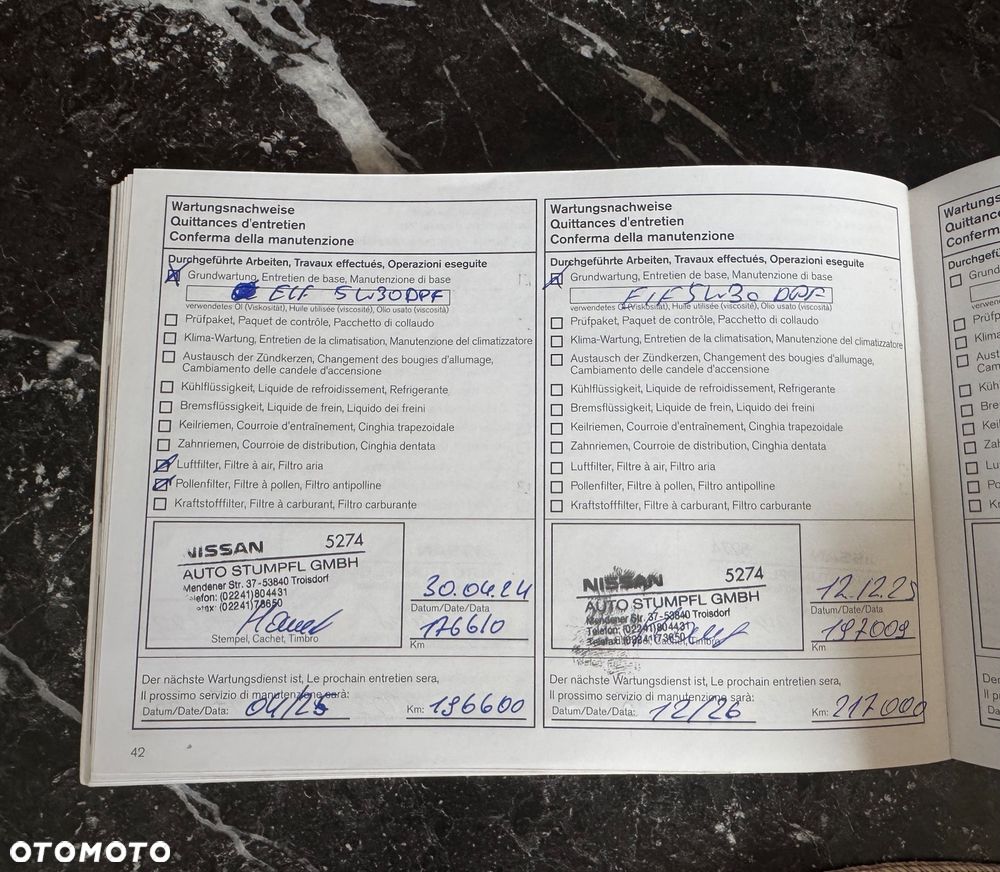 Wartungsnachweise
Quittances d'entretien
Conferma della manutenzione
Durchgeführte Arbeiten, Travaux effectués, Operazioni eseguite
Grundwartung, Entretien de base, Manutenzione di base
ELF 5W30DPF
verwendetes Öl (Viskosität), Huile utilisée (viscosité), Olio usato (viscosità)
Prüfpaket, Paquet de contrôle, Pacchetto di collaudo
Klima-Wartung, Entretien de la climatisation, Manutenzione del climatizzatore
Austausch der Zündkerzen, Changement des bougies d'allumage,
Cambiamento delle candele d'accensione
Kühlflüssigkeit, Liquide de refroidissement, Refrigerante
Bremsflüssigkeit, Liquide de frein, Liquido dei freini
Keilriemen, Courroie d'entraînement, Cinghia trapezoidale
Zahnriemen, Courroie de distribution, Cinghia dentata
Luftfilter, Filtre à air, Filtro aria
Pollenfilter, Filtre à pollen, Filtro antipolline
Kraftstofffilter, Filtre à carburant, Filtro carburante
NISSAN 5274
AUTO STUMPFL GMBH
Mendener Str. 37-53840 Troisdorf
(02241)804431
(02241)73650
Stempel, Cachet, Timbro
30.04.24
Datum/Date/Data
176610
Km
Der nächste Wartungsdienst ist, Le prochain entretien sera,
Il prossimo servizio di manutenzione sarà:
Datum/Date/Data: 04/25 Km: 196600
42
Wartungsnachweise
Quittances d'entretien
Conferma della manutenzione
Durchgeführte Arbeiten, Travaux effectués, Operazioni eseguite
Grundwartung, Entretien de base, Manutenzione di base
ELF 5W30 DPF
verwendetes Öl (Viskosität), Huile utilisée (viscosité), Olio usato (viscosità)
Prüfpaket, Paquet de contrôle, Pacchetto di collaudo
Klima-Wartung, Entretien de la climatisation, Manutenzione del climatizzatore
Austausch der Zündkerzen, Changement des bougies d'allumage,
Cambiamento delle candele d'accensione
Kühlflüssigkeit, Liquide de refroidissement, Refrigerante
Bremsflüssigkeit, Liquide de frein, Liquido dei freini
Keilriemen, Courroie d'entraînement, Cinghia trapezoidale
Zahnriemen, Courroie de distribution, Cinghia dentata
Luftfilter, Filtre à air, Filtro aria
Pollenfilter, Filtre à pollen, Filtro antipolline
Kraftstofffilter, Filtre à carburant, Filtro carburante
NISSAN 5274
AUTO STUMPFL GMBH
Mendener Str. 37-53840 Troisdorf
Telefon: (02241)804431
Telefax: (02241)73650
12.12.25
Datum/Date/Data
197009
Km
Der nächste Wartungsdienst ist, Le prochain entretien sera,
Il prossimo servizio di manutenzione sarà:
Datum/Date/Data: 12/26 Km: 217000
OTOMOTO